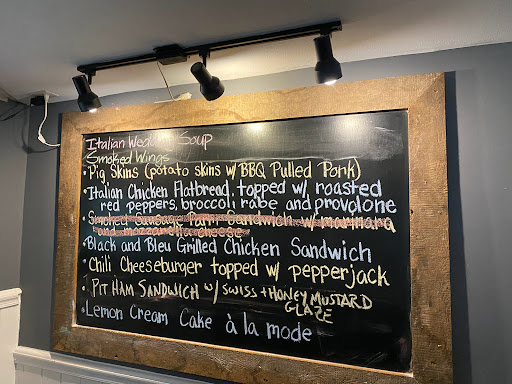 Italian Wedding Soup
Smoked Wings
• Pig Skins (potato skins w/ BBQ Pulled Pork)
• Italian Chicken Flatbread, topped w/ roasted
red peppers, broccoli rabe and provolone
Smoked Sausage Parm Sandwich w/ marinara
and mozzarella cheese
• Black and Bleu Grilled Chicken Sandwich
• Chili Cheeseburger topped w/ pepperjack
• Pit Ham Sandwich w/ Swiss + Honey Mustard
Glaze
• Lemon Cream Cake à la mode